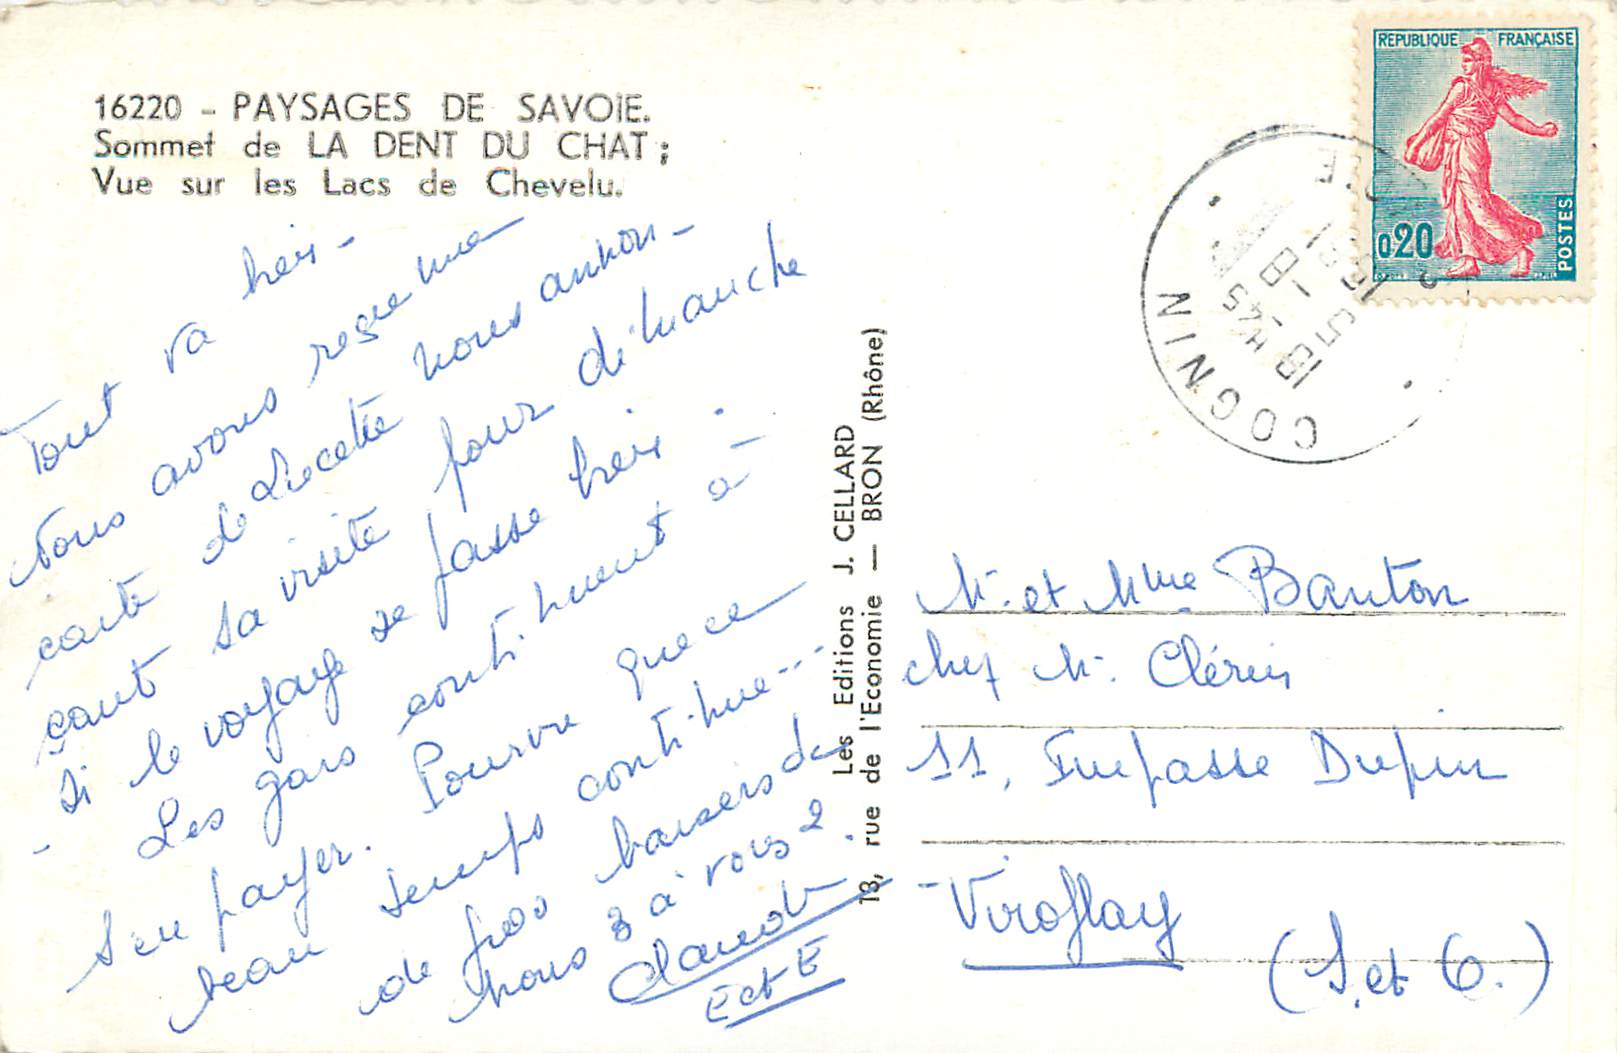 16220 - PAYSAGES DE SAVOIE.
Sommet de LA DENT DU CHAT ;
Vue sur les Lacs de Chevelu.
Tout va bien -
Nous avons reçu une
carte de Lucette nous annon-
çant sa visite pour dimanche
si le voyage se passe bien.
- Les gars continuent à -
s'en payer. Pourvu que ce
beau temps continue...
de gros baisers de
nous 3 à vous 2.
Claude
E et E
Les Editions J. CELLARD
18, rue de l'Economie — BRON (Rhône)
REPUBLIQUE FRANÇAISE
0,20
POSTES
COGNIN
18 H 45
1961
Mr. et Mme Banton
chez Mr. Clérin
11, Impasse Dupin
- Viroflay
(S. et O.)